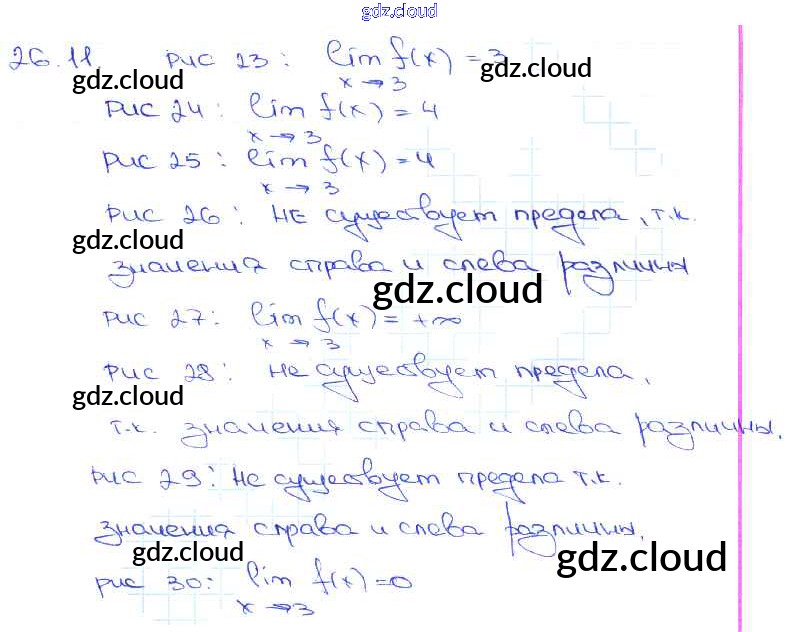 gdz.cloud
26.11. рис 23: lim f(x) = 3
gdz.cloud gdz.cloud
x → 3
рис 24: lim f(x) = 4
x → 3
рис 25: lim f(x) = 4
x → 3
рис 26: не существует предела, т.к.
gdz.cloud
значения справа и слева различны
gdz.cloud
рис 27: lim f(x) = +∞
x → 3
рис 28: не существует предела,
gdz.cloud
т.к. значения справа и слева различны.
рис 29: не существует предела т.к.
значения справа и слева различны.
gdz.cloud gdz.cloud
рис 30: lim f(x) = 0
x → 3